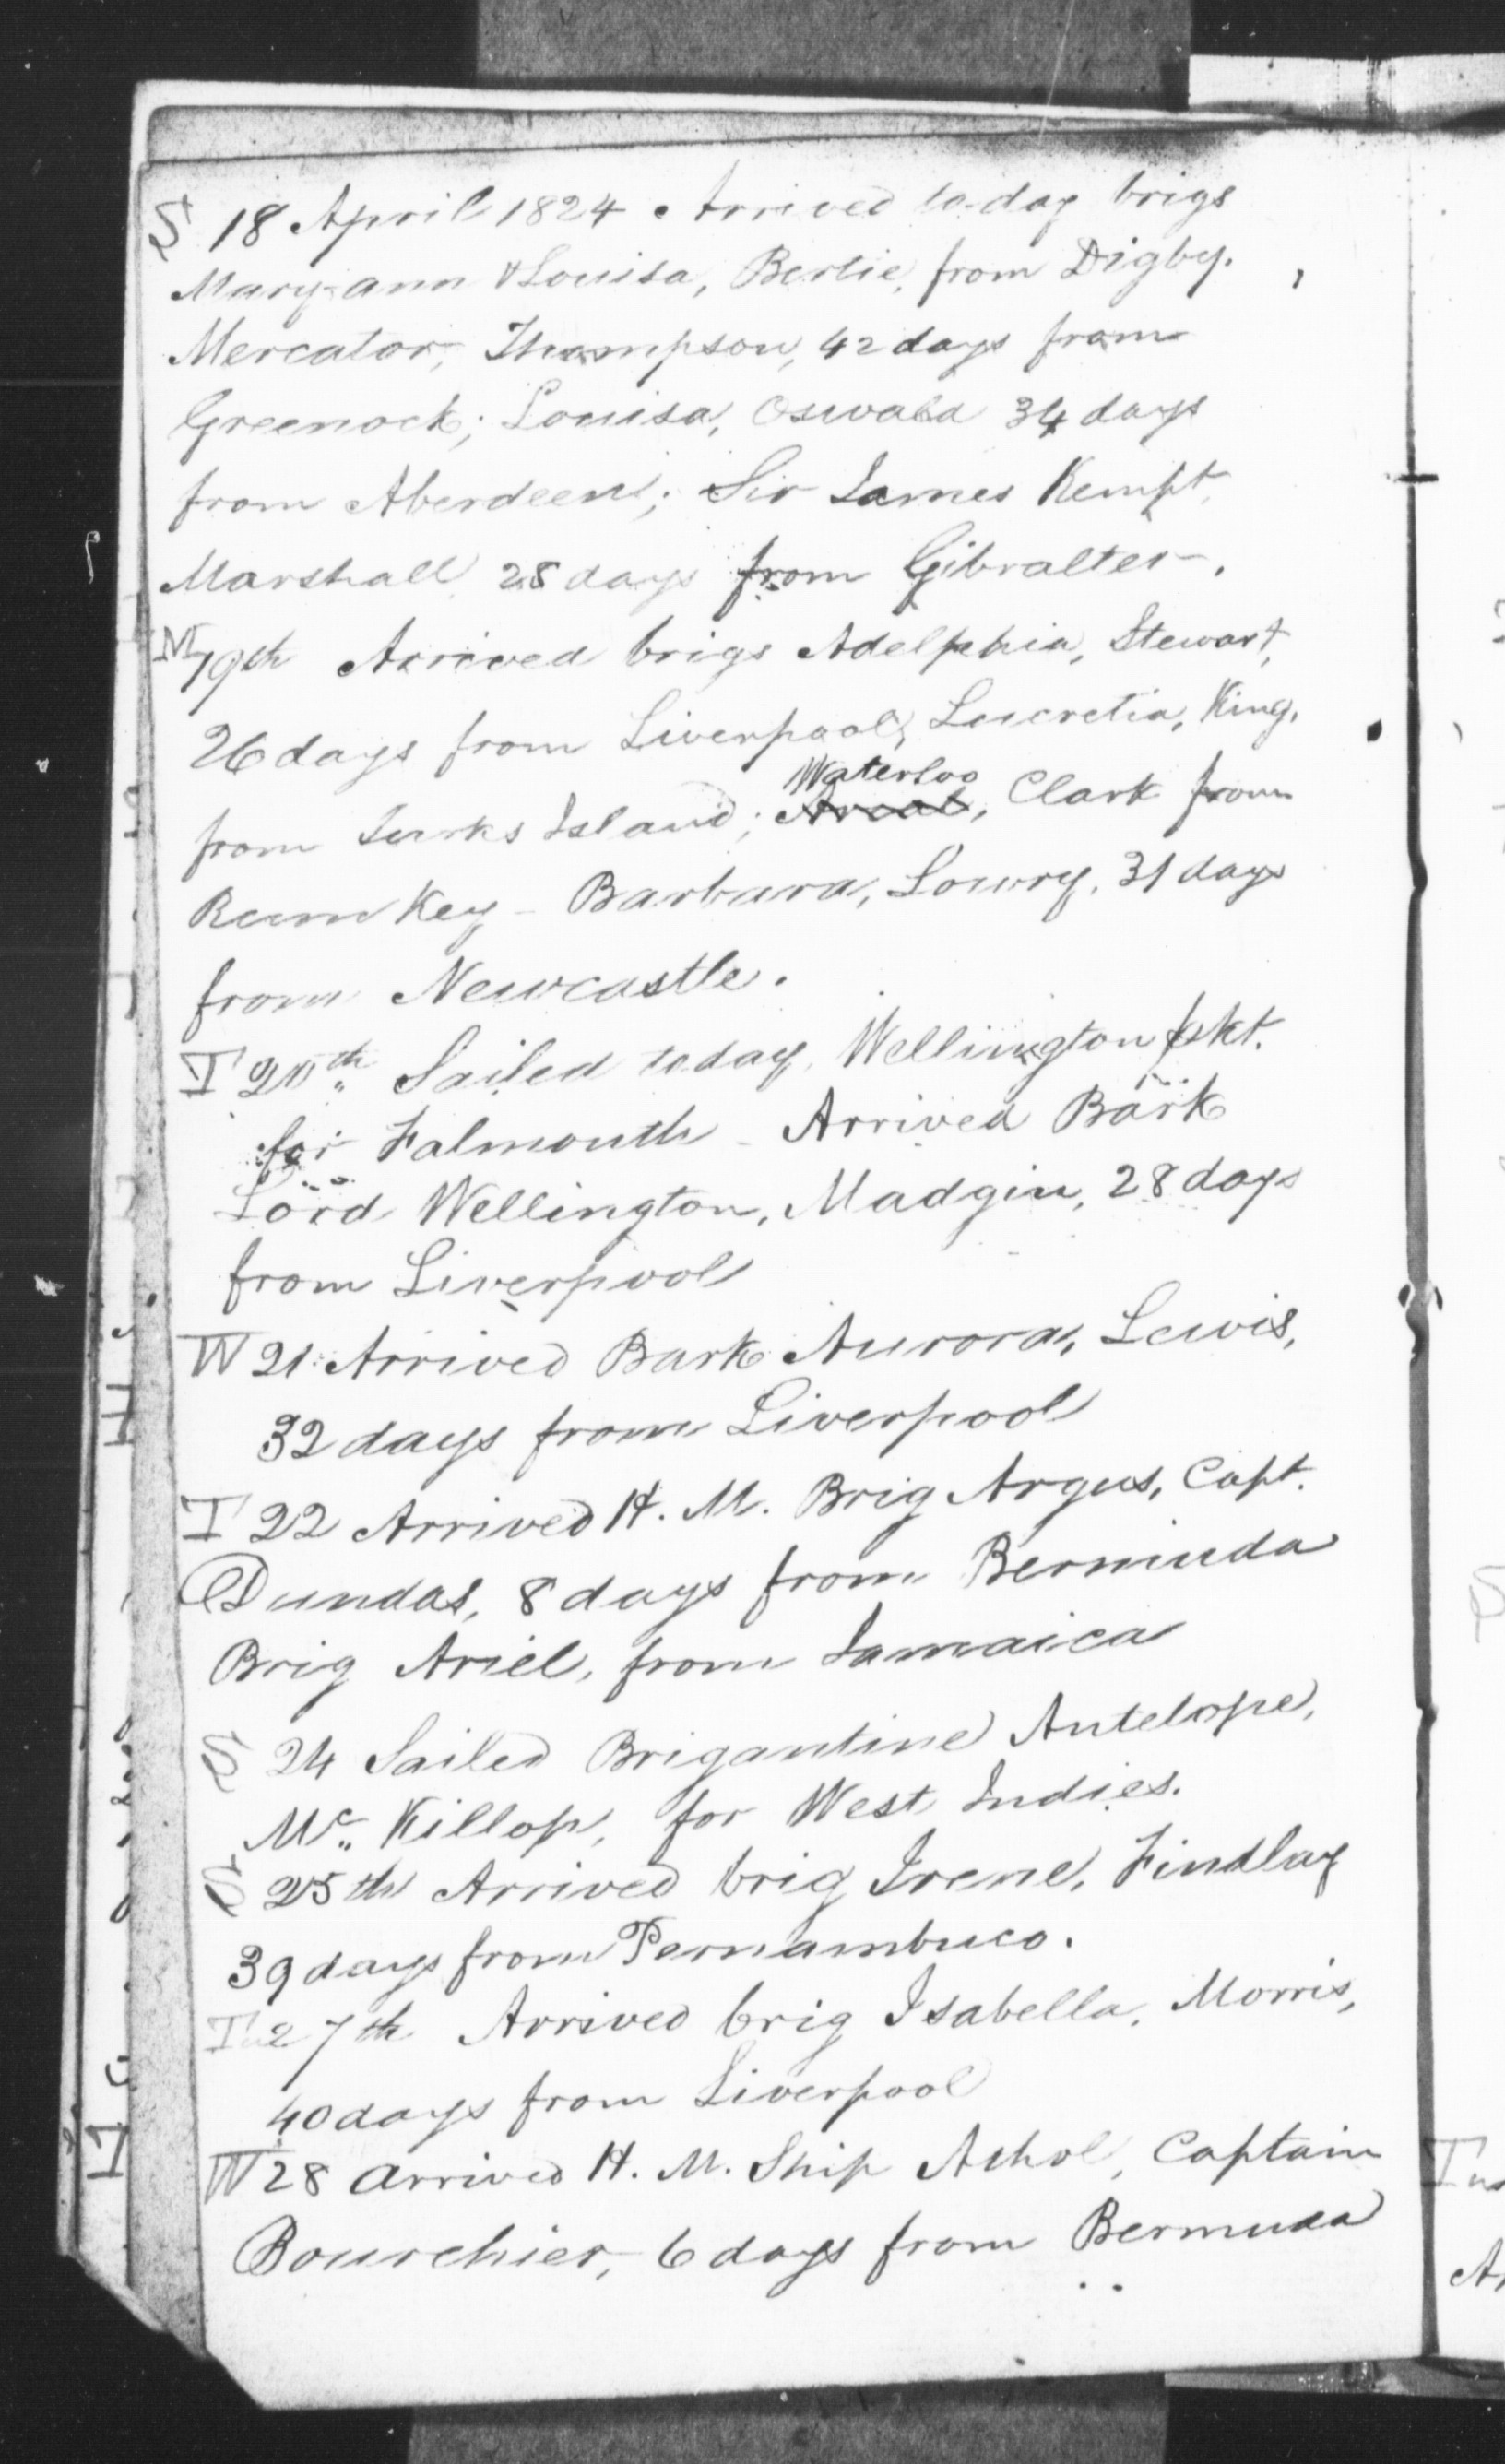 S 18 April 1824 Arrived to-day brigs
Mary-ann & Louisa, Bertie, from Digby.
Mercator, Thompson, 42 days from
Greenock; Louisa, Oswald 34 days
from Aberdeen; Sir James Kempt,
Marshall 28 days from Gibralter.
M 19th Arrived brigs Adelphia, Stewart,
26 days from Liverpool, Lucretia, King,
from Turks Island; Waterloo, Clark from
Rum Key - Barbara, Lowry, 31 days
from Newcastle.
T 20th Sailed today, Wellington pkt.
for Falmouth - Arrived Bark
Lord Wellington, Madgin, 28 days
from Liverpool
W 21 Arrived Bark Aurora, Lewis,
32 days from Liverpool
T 22 Arrived H. M. Brig Argus, Capt.
Dundas, 8 days from Bermuda
Brig Ariel, from Jamaica
S 24 Sailed Brigantine Antelope,
Mc. Killop, for West Indies.
S 25th Arrived brig Irene, Findlay
39 days from Pernambuco.
Tu 27th Arrived brig Isabella, Morris,
40 days from Liverpool
W 28 arrived H. M. Ship Athol, Captain
Bourchier, 6 days from Bermuda